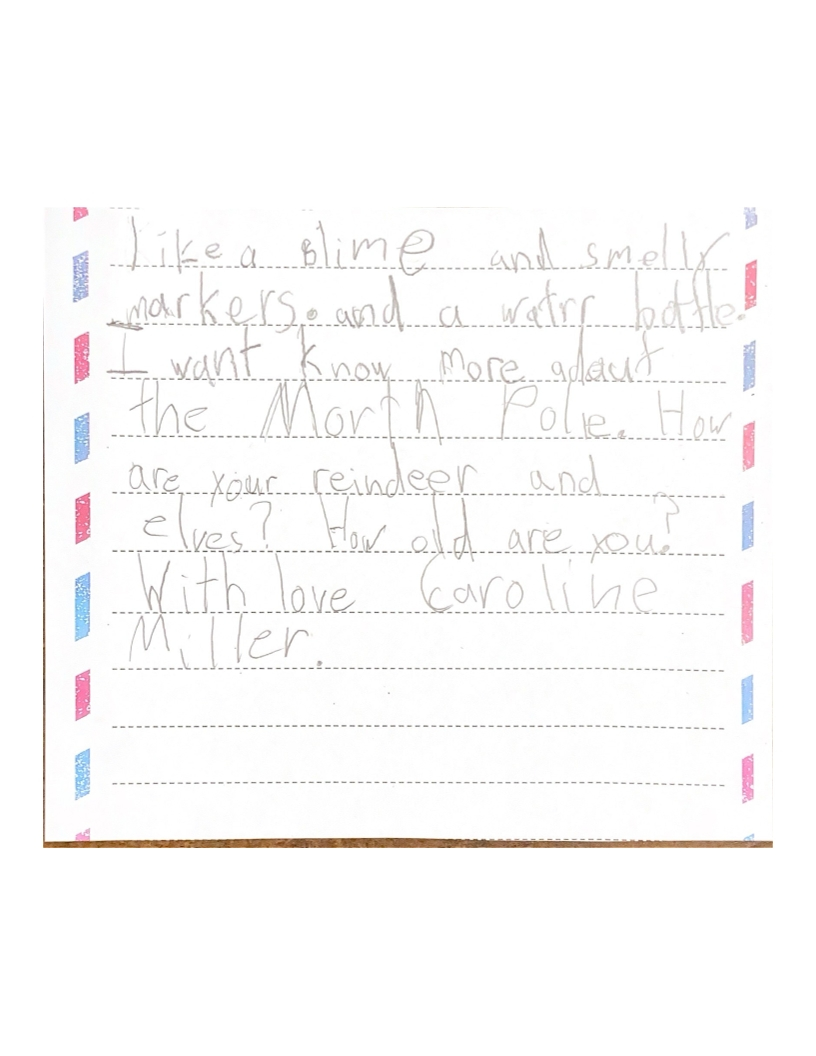 like a slime and smelly
markers. and a watrr bottle.
I want know more adaut
the Morth Pole. How
are your reindeer and
elves? How old are you?
With love Caroline
Miller.